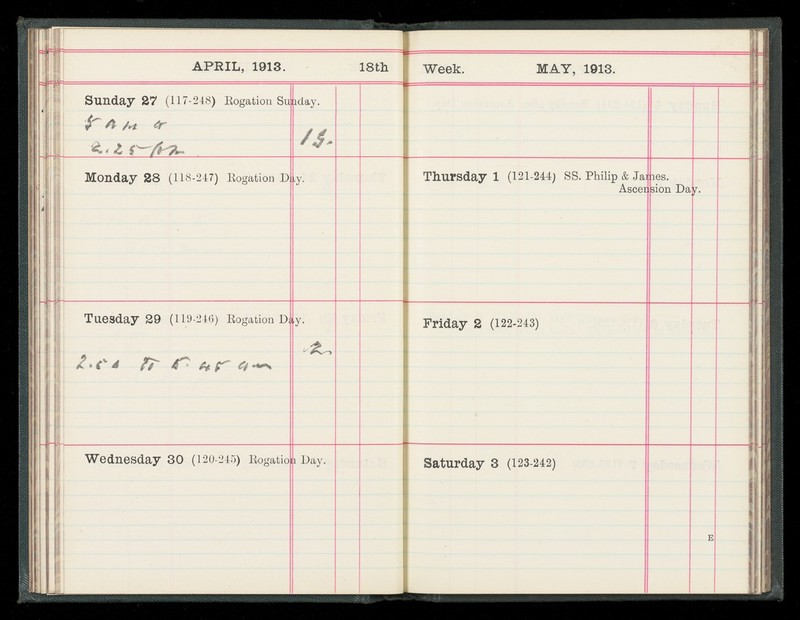 APRIL, 1913. 18th
Sunday 27 (117-248) Rogation Sunday.
5 am &
2.25 pm
Monday 28 (118-247) Rogation Day.
Tuesday 29 (119-246) Rogation Day.
2.50 to 5.45 am
Wednesday 30 (120-245) Rogation Day.
Week. MAY, 1913.
Thursday 1 (121-244) SS. Philip & James.
Ascension Day.
Friday 2 (122-243)
Saturday 3 (123-242)
E